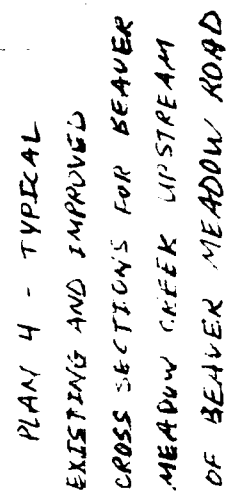 PLAN 4 - TYPICAL
EXISTING AND IMPROVED
CROSS SECTIONS FOR BEAVER
MEADOW CREEK UPSTREAM
OF BEAVER MEADOW ROAD